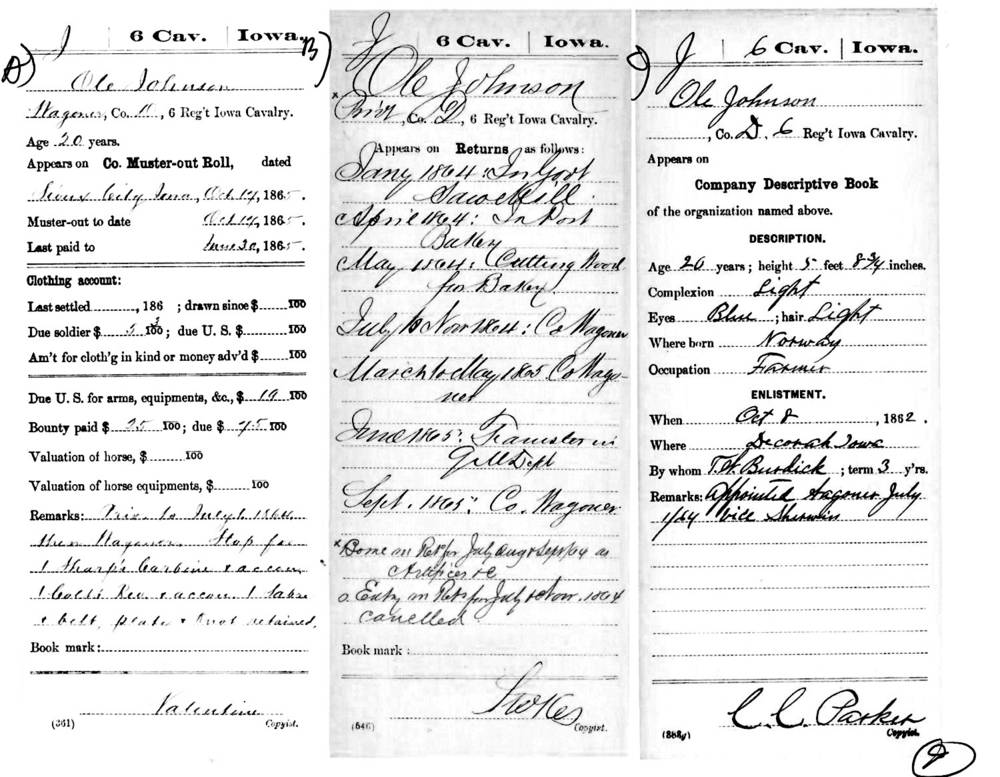 J | 6 Cav. | Iowa.
Ole Johnson
Wagoner, Co. D, 6 Reg't Iowa Cavalry.
Age 20 years.
Appears on Co. Muster-out Roll, dated
Sioux City Iowa, Oct 17, 1865.
Muster-out to date Oct 17, 1865.
Last paid to June 30, 1865.
Clothing account:
Last settled, 186 ; drawn since $ 100
Due soldier $ 100; due U. S. $ 100
Am't for cloth'g in kind or money adv'd $ 100
Due U. S. for arms, equipments, &c., $ 19 100
Bounty paid $ 25 100; due $ 75 100
Valuation of horse, $ 100
Valuation of horse equipments, $ 100
Remarks: Priv. to July 1, 1864
then Wagoner. Stop for
1 Sharp's Carbine & accou
1 Colts Rev. & accou. 1 Sabre
& belt, plate & knot retained.
Book mark:
Valentine
(361) Copyist.
J | 6 Cav. | Iowa.
Ole Johnson
x Priv, Co. D, 6 Reg't Iowa Cavalry.
Appears on Returns as follows:
Jany 1864: In Govt
Saw Mill.
April 1864: In Post
Bakey
May 1864: Cutting Wood
for Bakey
July to Nov 1864: Co Wagoner
March to May 1865 Co Wago-
ner
June 1865: Teamster in
Q M Dept
Sept. 1865: Co. Wagoner
x Borne on Rets for July Aug & Sept/64 as
Artificer &c
o Entry on Rets for July & Nov. 1864
canelled
Book mark:
Stokes
(546) Copyist.
J | 6 Cav. | Iowa.
Ole Johnson
, Co. D, 6 Reg't Iowa Cavalry.
Appears on
Company Descriptive Book
of the organization named above.
DESCRIPTION.
Age 20 years; height 5 feet 8 3/4 inches.
Complexion Light
Eyes Blue ; hair Light
Where born Norway
Occupation Farmer
ENLISTMENT.
When Oct 8, 1862.
Where Decorah Iowa
By whom T. W. Burdick ; term 3 y'rs.
Remarks: Appointed wagoner July
1/64 vice Sherwin
C. C. Parker
Copyist.